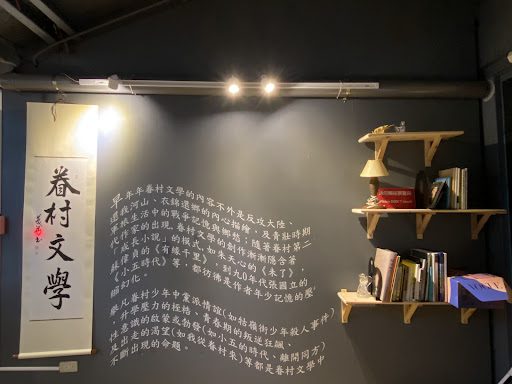 眷村文學
早年年眷村文學的內容不外是反攻大陸、
還我河山、衣錦還鄉的內心描繪，及青壯時期
軍旅生活中的戰爭記憶與撫帖；隨著眷村第二
代作家的出現，眷村文學的創作漸漸隱含著
「成長小說」的模式，如朱天心的《未了》，
蘇偉貞的《有緣千里》，到九0年代張國立的
《小五時代》等，都彷彿是作者年少記憶的
幻化。
舉凡眷村少年中黨派情誼(如牯嶺街少年殺人事件)
、升學壓力的桎梏、青春期的叛逆狂飆、
性意識的啟蒙或勃發(如小五的時代、離開同方)
及出走的渴望(如我從眷村來)等都是眷村文學中
不斷出現的命題。